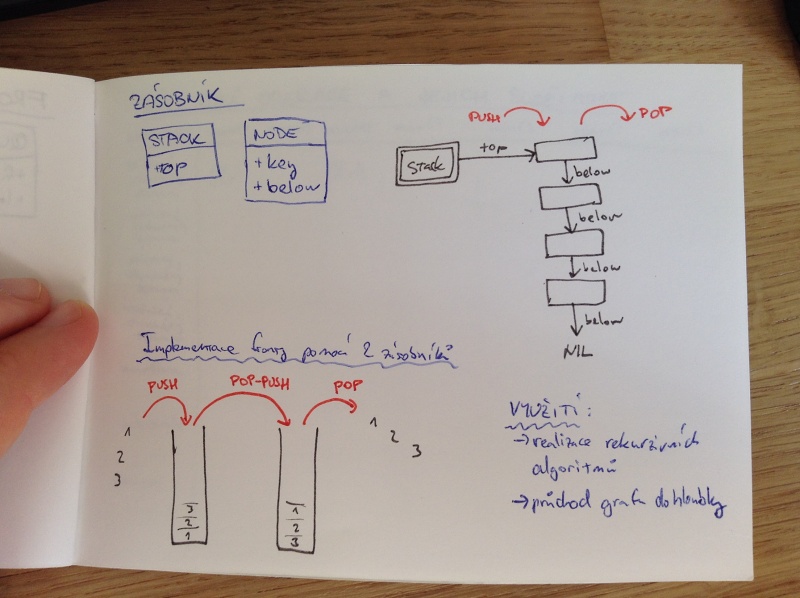 ZÁSOBNÍK
STACK
+top
NODE
+key
+below
PUSH
POP
Stack
top
below
below
below
below
NIL
Implementace fronty pomocí 2 zásobníků
PUSH
POP-PUSH
POP
1
2
3
3
2
1
1
2
3
1
2
3
VYUŽITÍ:
→ realizace rekurzivních
algoritmů
→ průchod grafu do hloubky